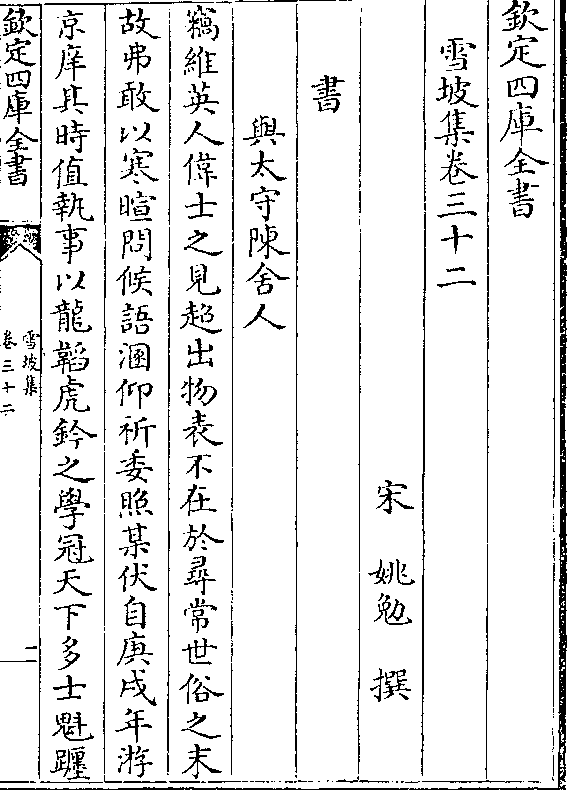 欽定四庫全書
雪坡集卷三十二
宋 姚勉 撰
書
與太守陳舍人
竊維英人偉士之見超出物表不在於尋常世俗之末
故弗敢以寒暄問候語溷仰祈委照某伏自庚戌年游
京庠其時值執事以龍韜虎鈐之學冠天下多士魁躔
欽定四庫全書
雪坡集
卷三十二
一